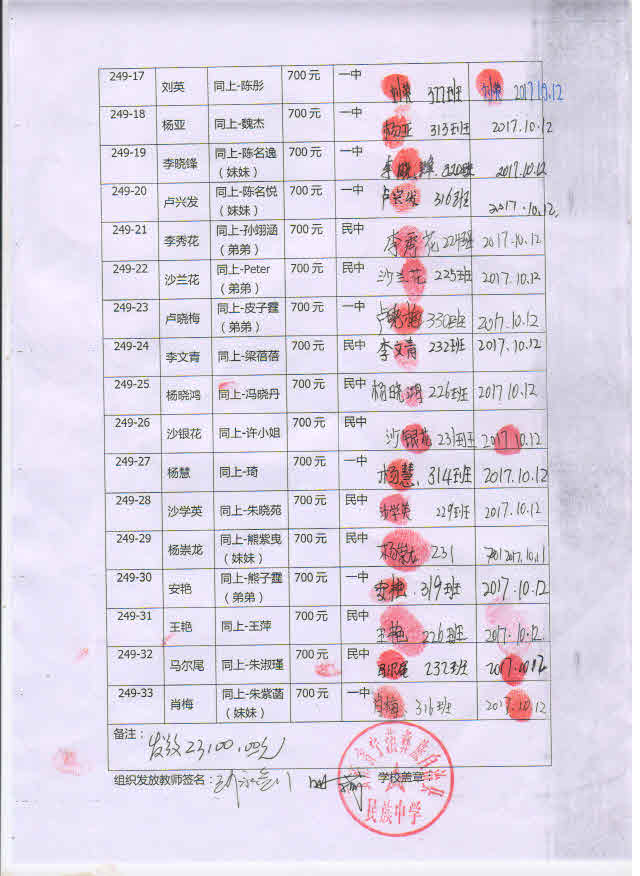 249-17 刘英 同上-陈彤 700元 一中 刘英 377班 刘英 2017.10.12
249-18 杨亚 同上-魏杰 700元 一中 杨亚 313班 2017.10.12
249-19 李晓锋 同上-陈名逸 700元 一中 李晓锋 班 2017.10.12
（妹妹）
249-20 卢兴发 同上-陈名悦 700元 一中 卢兴发 316班 2017.10.12
（妹妹）
249-21 李秀花 同上-孙翊涵 700元 民中 李秀花 224班 2017.10.12
（弟弟）
249-22 沙兰花 同上-Peter 700元 民中 沙兰花 225班 2017.10.12
（弟弟）
249-23 卢晓梅 同上-皮子霆 700元 一中 卢晓梅 330班 2017.10.12
（弟弟）
249-24 李文青 同上-梁蓓蓓 700元 民中 李文青 232班 2017.10.12
249-25 杨晓鸿 同上-冯晓丹 700元 民中 杨晓鸿 226班 2017.10.12
249-26 沙银花 同上-许小姐 700元 民中 沙银花 231班 2017.10.12
249-27 杨慧 同上-琦 700元 一中 杨慧 314班 2017.10.12
249-28 沙学英 同上-朱晓苑 700元 民中 沙学英 229班 2017.10.12
249-29 杨崇龙 同上-熊紫曳 700元 民中 杨崇龙 231 2017.10.11
（妹妹）
249-30 安艳 同上-熊子霆 700元 一中 安艳 319班 2017.10.12
（弟弟）
249-31 王艳 同上-王萍 700元 民中 王艳 226班 2017.10.12
249-32 马尔尾 同上-朱淑瑾 700元 民中 马尔尾 232班 2017.10.12
249-33 肖梅 同上-朱紫菡 700元 一中 肖梅 316班 2017.10.12
（妹妹）
备注：
发放23100.00元
组织发放教师签名： 学校盖章：
民族中学